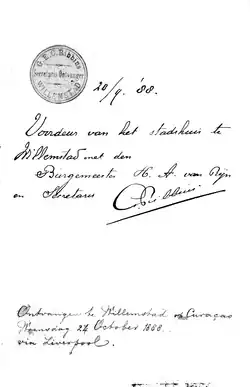 G. E. O. Ribbius
Secretaris-Ontvanger
WILLEMSTAD
20/9 '88.
Voordeur van het stadshuis te
Willemstad met den
Burgemeester H. A. van Rijn
en Secretaris
Ontvangen te Willemstad Curaçao
Woensdag 24 October 1888.
via Liverpool.